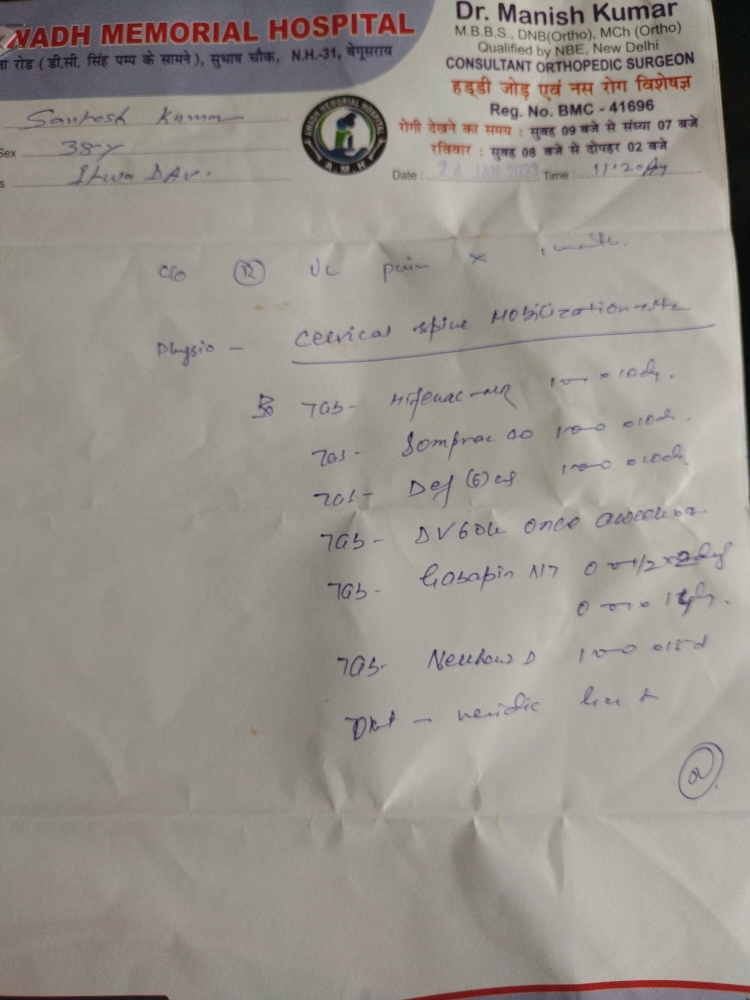 NADH MEMORIAL HOSPITAL
रोड (डी.सी. सिंह पम्प के सामने), सुभाष चौक, N.H.-31, बेगूसराय
Dr. Manish Kumar
M.B.B.S., DNB(Ortho), MCh (Ortho)
Qualified by NBE, New Delhi
CONSULTANT ORTHOPEDIC SURGEON
हड्डी जोड़ एवं नस रोग विशेषज्ञ
Reg. No. BMC - 41696
रोगी देखने का समय : सुबह 09 बजे से संध्या 07 बजे
रविवार : सुबह 08 बजे से दोपहर 02 बजे
Santosh Kumar
Sex 38y
DAV.
AWADH MEMORIAL HOSPITAL
A.M.H
Date : 24 JAN 2023 Time : 11:20
C/o R UL pain x 1 month.
Physio - Cervical spine Mobilization
Rx Tab- Hifenac-MR x 10d.
Tab- Somprac 40 1-0-0 x 10d.
Tab- Def (6) 1-0-0 x 10d.
Tab- DV60k once a week
Tab- Gabapin NT 0-0-1/2 x
0-0-1 x
Tab- 1-0-0 x 15d